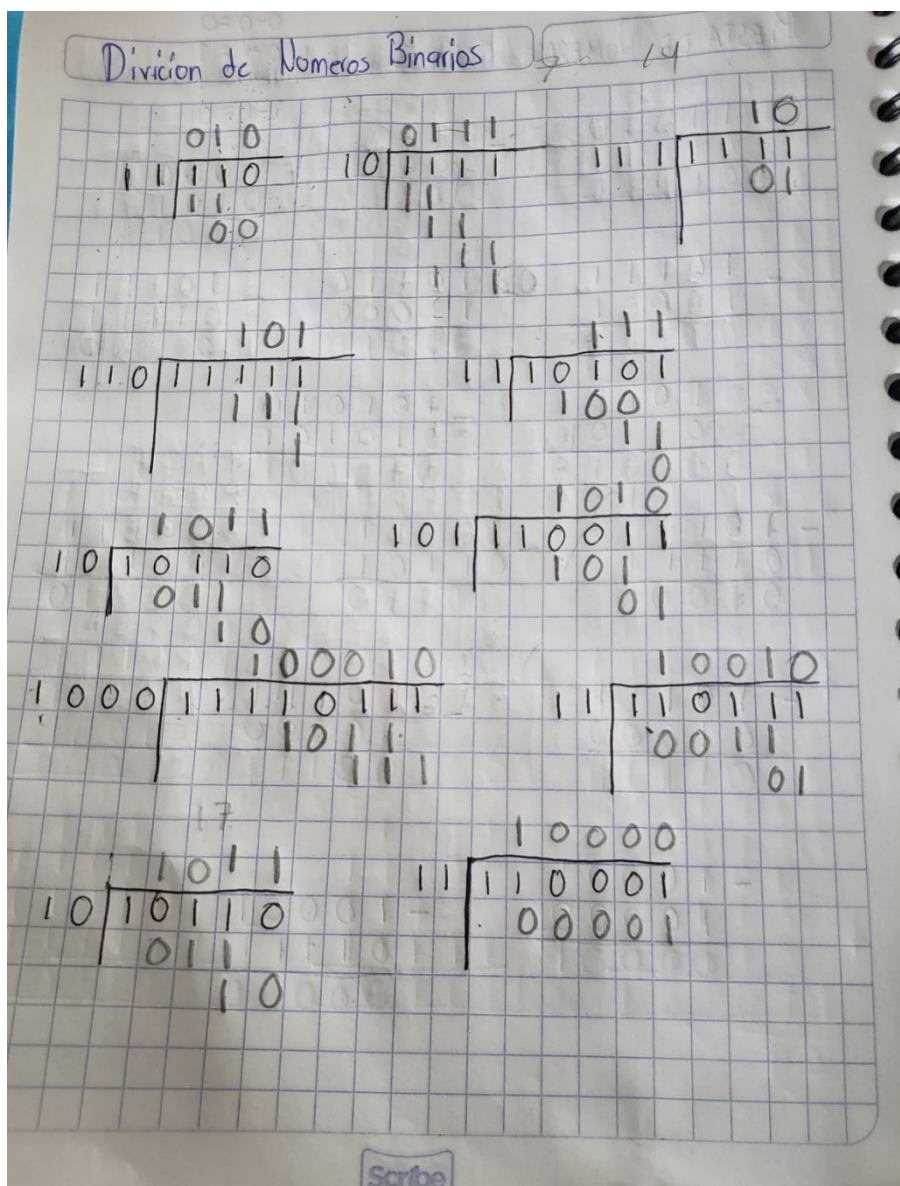 Divicion de Nomeros Binarios
14
010 0111 10
11 110 10 1111 111 1111
11 11 01
00 11
11
1
101 111
110 11111 11 10101
111 100
1 11
0
1011 1010
10 10110 101 110011
011 101
10 01
100010 10010
1000 11110111 11 110111
1011 0011
111 01
17
1011 10000
10 10110 11 110001
011 00001
10
Scribe